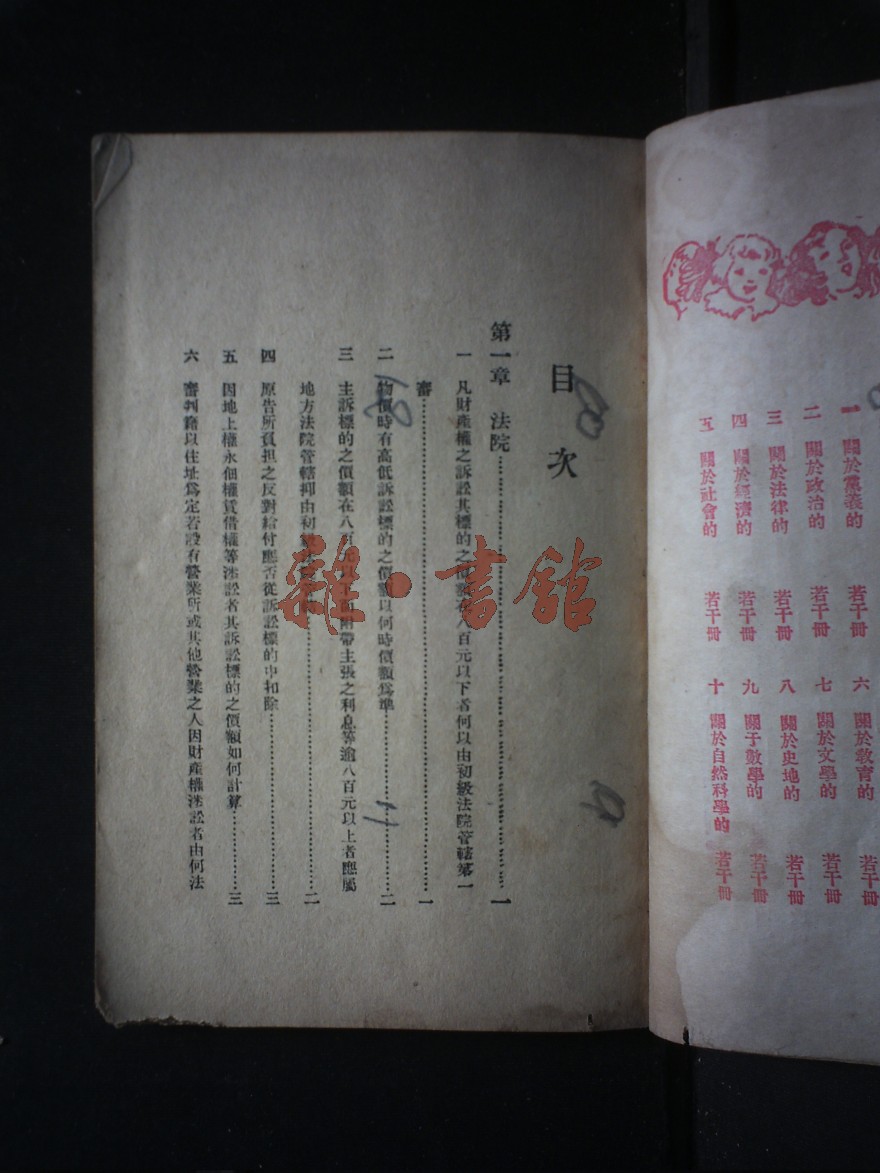 一 關於黨義的 若干冊 六 關於敎育的 若干冊
二 關於政治的 若干冊 七 關於文學的 若干冊
三 關於法律的 若干冊 八 關於史地的 若干冊
四 關於經濟的 若干冊 九 關于數學的 若干冊
五 關於社會的 若干冊 十 關於自然科學的 若干冊
目次
第一章 法院……一
一 凡財產權之訴訟其標的之價額在八百元以下者何以由初級法院管轄第一
審……一
二 物價時有高低訴訟標的之價額以何時價額爲準……二
三 主訴標的之價額在八百元以下而附帶主張之利息等逾八百元以上者應屬
地方法院管轄抑由初級……二
四 原告所負担之反對給付應否從訴訟標的中扣除……三
五 因地上權永佃權賃借權等涉訟者其訴訟標的之價額如何計算……三
六 審判籍以住址爲定若設有營業所或其他營業之人因財產權涉訟者由何法
雜·書館